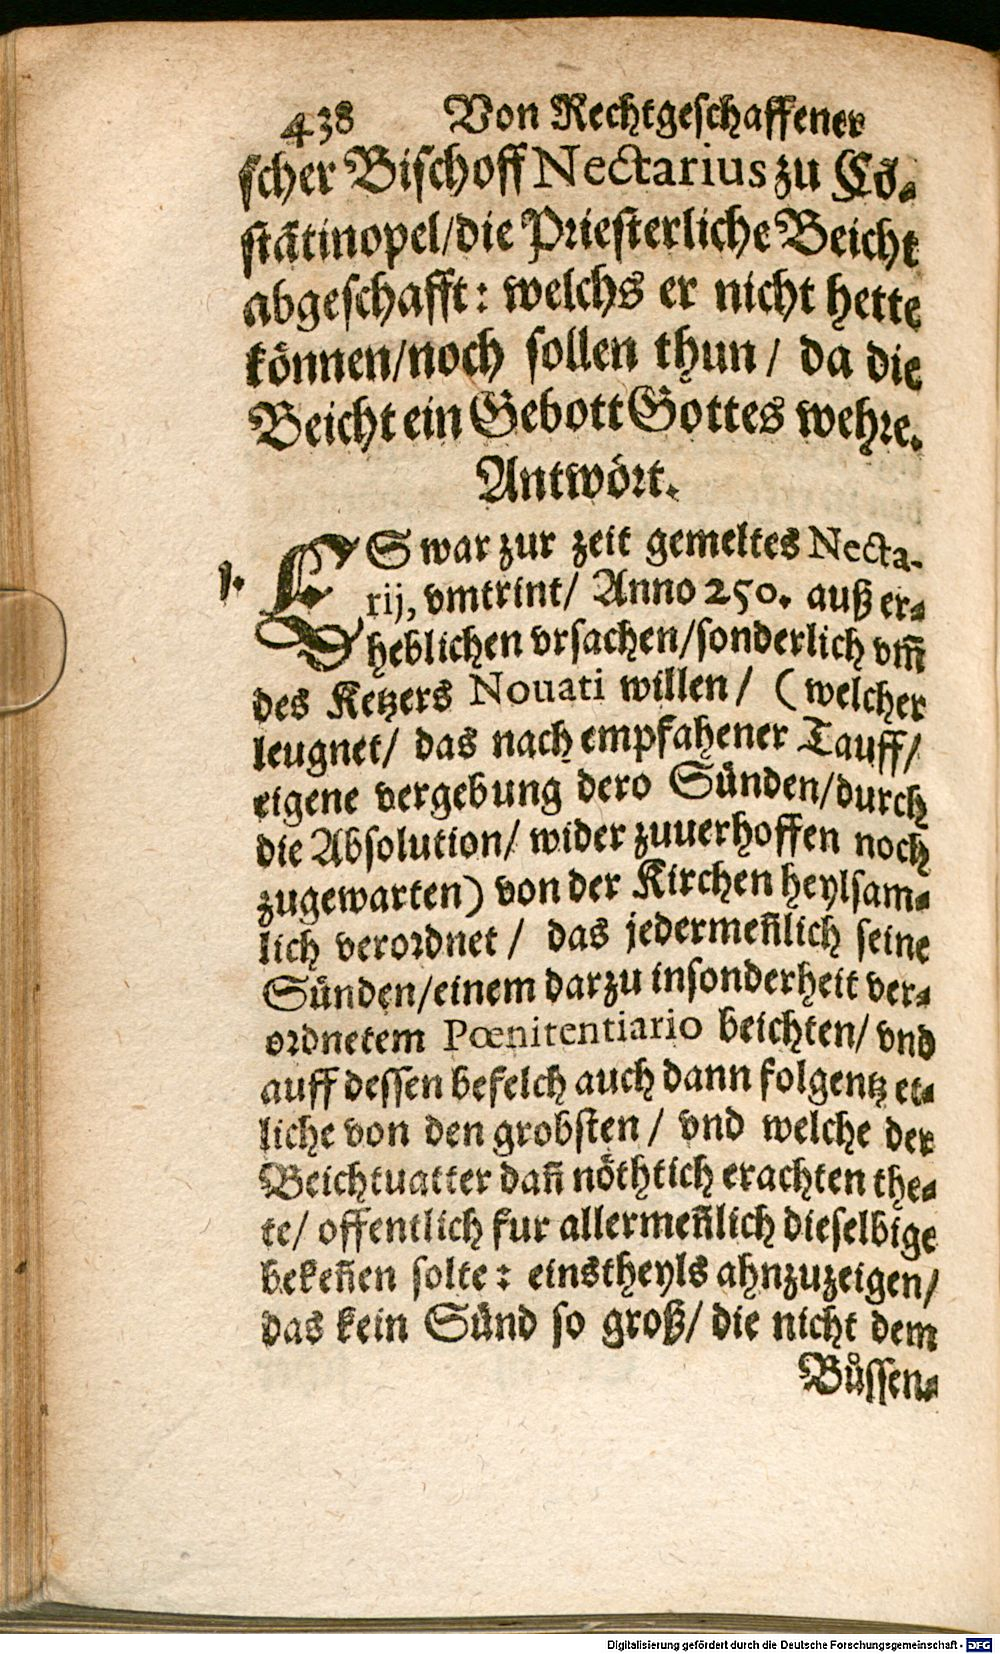 438 Von Rechtgeschaffener
scher Bischoff Nectarius zu Cõ-
stãtinopel/die Priesterliche Beicht
abgeschafft: welchs er nicht hette
können/noch sollen thun/ da die
Beicht ein Gebott Gottes wehre.
Antwort.
1. ES war zur zeit gemeltes Necta-
rij, vmtrint/ Anno 250. auß er-
heblichen vrsachen/sonderlich vm̃
des Ketzers Nouati willen/ (welcher
leugnet/ das nach empfahener Tauff/
eigene vergebung dero Sünden/durch
die Absolution/ wider zuuerhoffen noch
zugewarten) von der Kirchen heylsam-
lich verordnet/ das jedermeñlich seine
Sünden/einem darzu insonderheit ver-
ordnetem Pœnitentiario beichten/ vnd
auff dessen befelch auch dann folgentz et-
liche von den grobsten/ vnd welche der
Beichtuatter dañ nöthtich erachten the-
te/ offentlich fur allermeñlich dieselbige
bekeñen solte: einstheyls ahnzuzeigen/
das kein Sünd so groß/ die nicht dem
Bůssen-
Digitalisierung gefördert durch die Deutsche Forschungsgemeinschaft - DFG